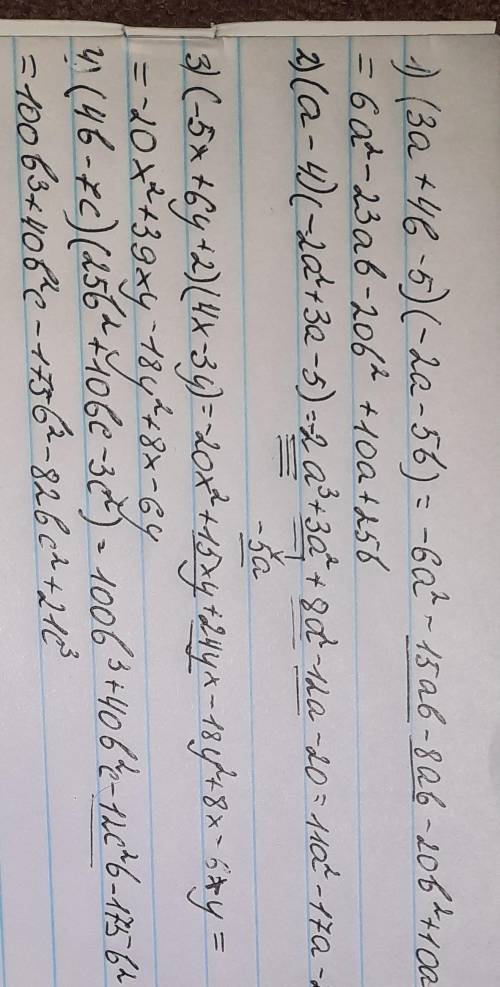 1) (3a + 4b - 5)(-2a - 5b) = -6a² - 15ab - 8ab - 20b² + 10a
= 6a² - 23ab - 20b² + 10a + 25b
2) (a - 4)(-2a² + 3a - 5) = -2a³ + 3a² + 8a² - 12a - 20 = 11a² - 17a - 2
- 5a
3) (-5x + 6y + 2)(4x - 3y) = -20x² + 15xy + 24yx - 18y² + 8x - 6y =
= -20x² + 39xy - 18y² + 8x - 6y
4) (4b - 7c)(25b² + 10bc - 3c²) = 100b³ + 40b²c - 12c²b - 175b²
= 100b³ + 40b²c - 175b² - 82bc² + 21c³